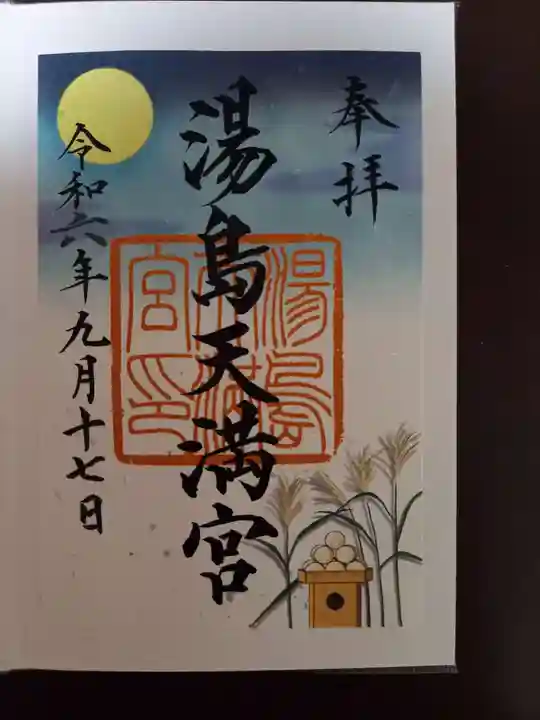 奉拝
湯島天満宮
湯島天満宮印
令和六年九月十七日